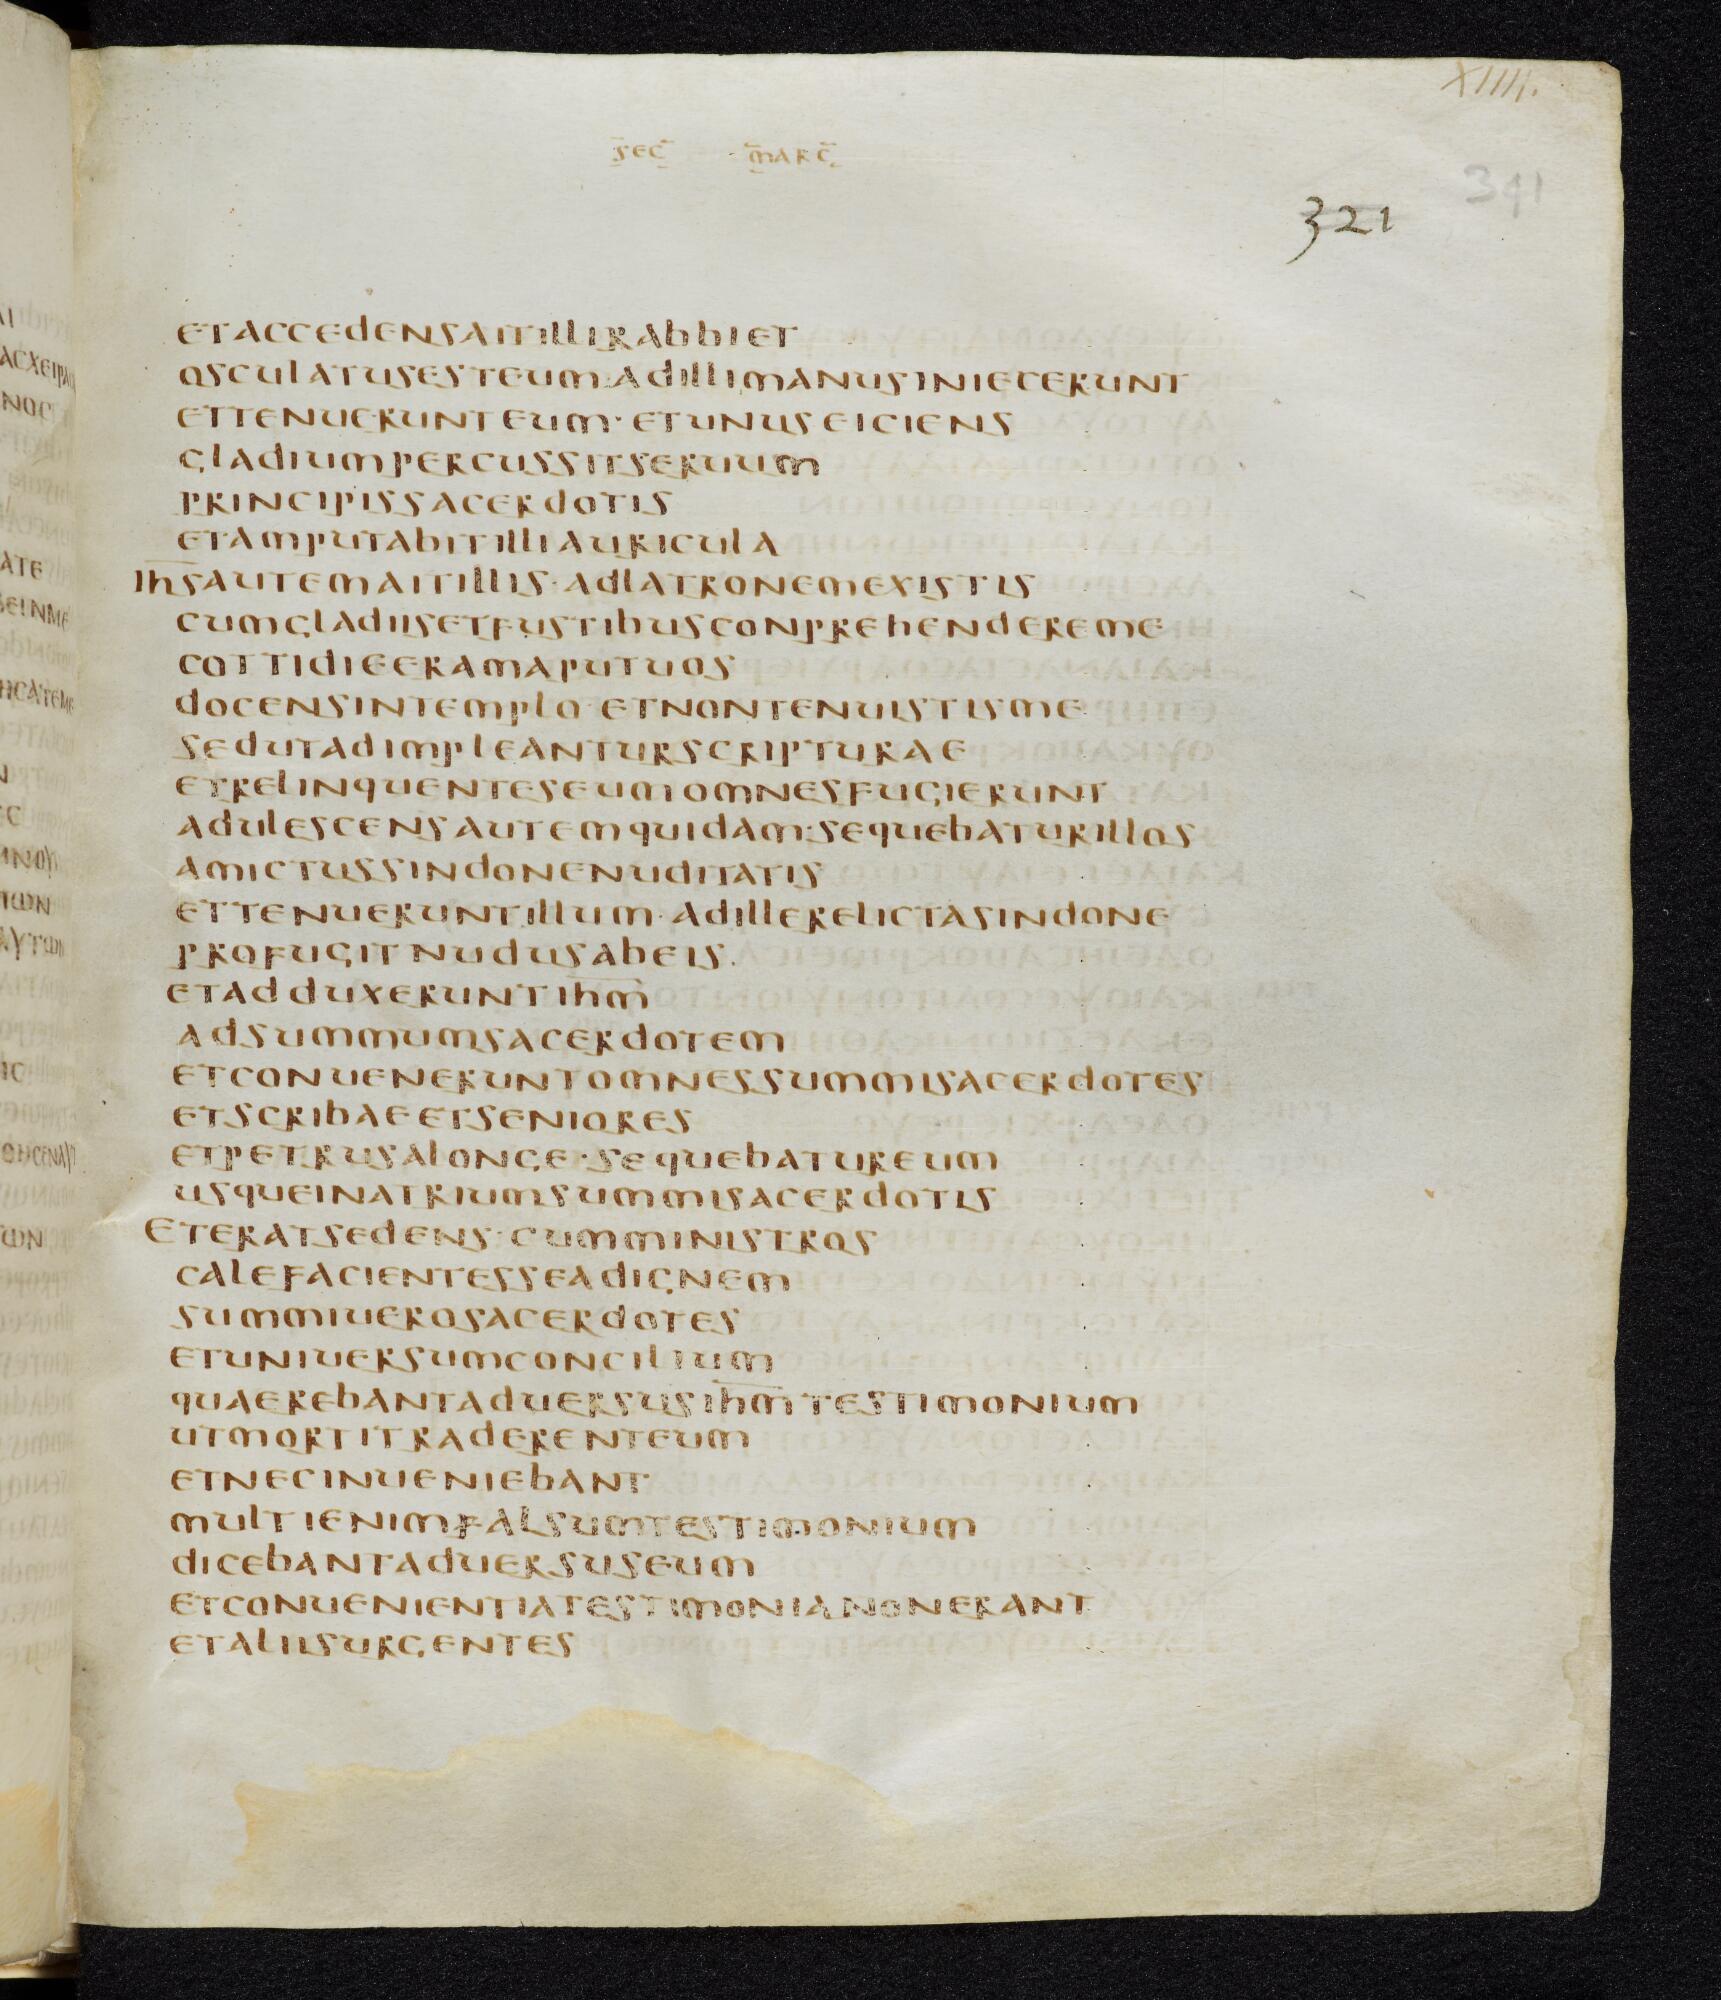 XIIII.
341
sec̄ m̄arc̄
321
etaccedensaitillirabbiet
osculatusesteum·adillimanusiniecerunt
ettenuerunteum· etunus eiciens
gladiumpercussitseruum
principissacerdotis
etamputabitilliauricula
ih̄sautemaitillis·adlatronemexistis
cumgladiisetfustibusconprehendereme
cottidieeramaputuos
docensintemplo·etnontenuistisme
sedutadimpleanturscripturae
etrelinquenteseumomnesfugierunt
adulescensautemquidam:sequebaturillos
amictussindonenuditatis
ettenueruntillum·adillerelictasindone
profugitnudusabeis.
etadduxeruntih̄m̄
adsummumsacerdotem
etconueneruntomnessummisacerdotes
etscribaeetseniores
etpetrusalonge·sequebatureum
usqueinatriumsummisacerdotis
Eteratsedens·cumministros
calefacientesseadignem
summiuerosacerdotes
etuniuersumconcilium
quaerebantaduersusih̄m̄testimonium
utmortitraderenteum
etnecinueniebant·
multienimfalsumtestimonium
dicebantaduersuseum
etconuenientiatestimonianonerant
etaliisurgentes